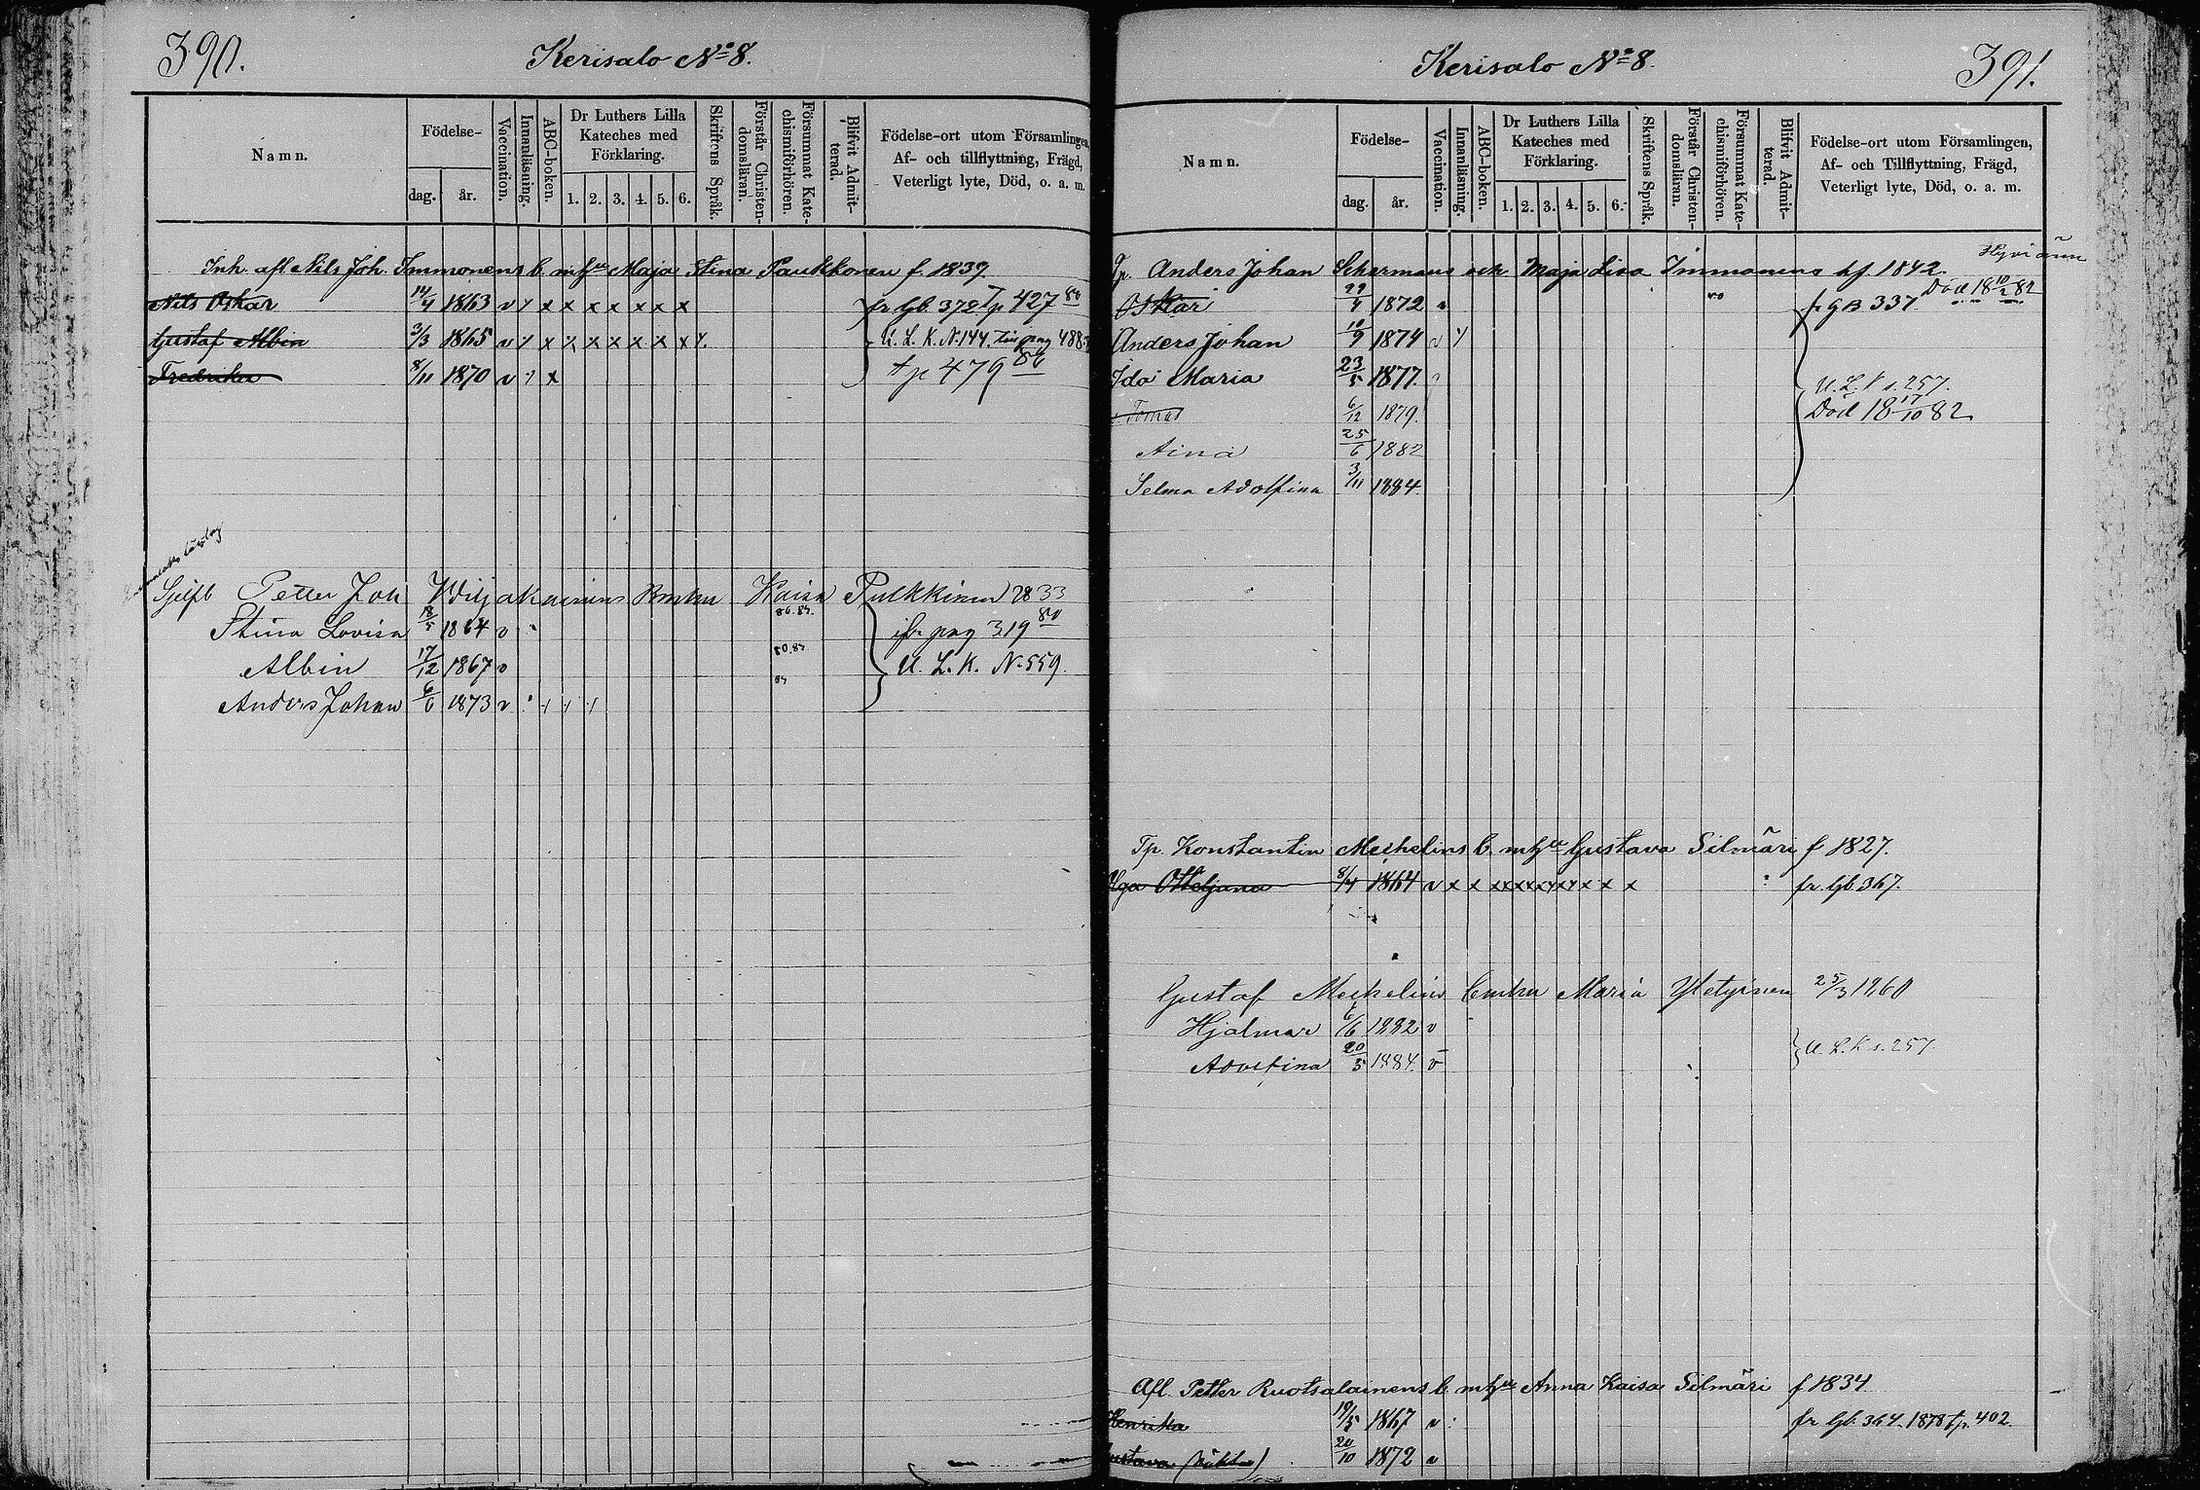 390.
Kerisalo No 8.
Namn.
Födelse-
dag.
år.
Vaccination.
Innanläsning.
ABC-boken.
Dr Luthers Lilla
Kateches med
Förklaring.
1. 2. 3. 4. 5. 6.
Skriftens Språk.
Förstår Christen-
domsläran.
Försummat Kate-
chismiförhören.
Blifvit Admit-
terad.
Födelse-ort utom Församlingen,
Af- och tillflyttning, Frägd,
Veterligt lyte, Död, o. a. m.
Inh. afl Nils Joh. Immonens b. m hu Maja Stina Paukkonen f. 1839.
Nils Oskar 14/4 1863 v x x x x x x x fr. Gb. 372 Tp 427
Gustaf Albin 3/3 1865 v x x x x x x x U. L. K. N. 144 pag 488
Fredrika 8/11 1870 v x tp 479 86
Petter Joh Wiljakainins Kaisa Pulkkinen 1833
86.87.
Stina Lovisa 18/5 1864 v pag 319 80
80.87.
Albin 17/12 1867 v U. L. K. N. 559.
Anders Johan 6/6 1873 v
391.
Kerisalo No 8.
Namn.
Födelse-
dag.
år.
Vaccination.
Innanläsning.
ABC-boken.
Dr Luthers Lilla
Kateches med
Förklaring.
1. 2. 3. 4. 5. 6.
Skriftens Språk.
Förstår Christen-
domsläran.
Försummat Kate-
chismiförhören.
Blifvit Admit-
terad.
Födelse-ort utom Församlingen,
Af- och Tillflyttning, Frägd,
Veterligt lyte, Död, o. a. m.
Tp. Anders Johan Schermans och Maja Lisa Immonens hf 1842.
Oskar 1872 fr GB 337. Död 18 10/2 82
Anders Johan 10/9 1874 v
Ida Maria 23/5 1877. U. L. K s. 257.
Tomas 6/12 1879. Död 18 17/10 82
Aina 25/6 1882
Selma Adolfina 3/11 1884.
Tp. Konstantin Mechelins b. m hu Gustava Silmäri f 1827.
Olga Otteljana 8/4 1864 v x x x x x x x x x x fr. Gb. 367.
Gustaf Mechelins Maria 25/3 1860
Hjalmar 6/6 1882 v
Adolfina 20/5 1884. v U. L. K s. 257.
Afl. Petter Ruotsalainens b. m hu Anna Kaisa Silmäri f 1834
Henrika 19/5 1867 v fr Gb. 364. 1878 tp. 402
Gustava 20/10 1872 v